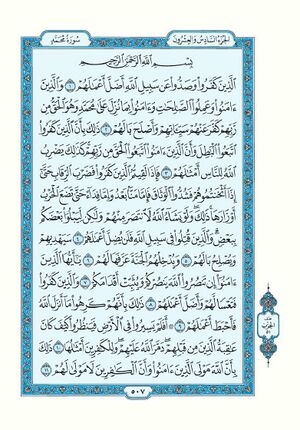 الجزء السادس والعشرون
سورة محمد
بسم الله الرحمن الرحيم
الذين كفروا وصدوا عن سبيل الله أضل أعملهم ١ والذين
ءامنوا وعملوا الصلحت وءامنوا بما نزل على محمد وهو الحق من
ربهم كفر عنهم سيئاتهم وأصلح بالهم ٢ ذلك بأن الذين كفروا
اتبعوا البطل وأن الذين ءامنوا اتبعوا الحق من ربهم كذلك يضرب
الله للناس أمثلهم ٣ فإذا لقيتم الذين كفروا فضرب الرقاب حتى
إذا أثخنتموهم فشدوا الوثاق فإما منا بعد وإما فداء حتى تضع الحرب
أوزارها ذلك ولو يشاء الله لانتصر منهم ولكن ليبلوا بعضكم
ببعض والذين قتلوا في سبيل الله فلن يضل أعملهم ٤ سيهديهم
ويصلح بالهم ٥ ويدخلهم الجنة عرفها لهم ٦ يأيها الذين
ءامنوا إن تنصروا الله ينصركم ويثبت أقدامكم ٧ والذين كفروا
فتعسا لهم وأضل أعملهم ٨ ذلك بأنهم كرهوا ما أنزل الله
فأحبط أعملهم ٩ أفلم يسيروا في الأرض فينظروا كيف كان
عقبة الذين من قبلهم دمر الله عليهم وللكفرين أمثلها ١٠ ذلك
بأن الله مولى الذين ءامنوا وأن الكفرين لا مولى لهم ١١
٥٠٧